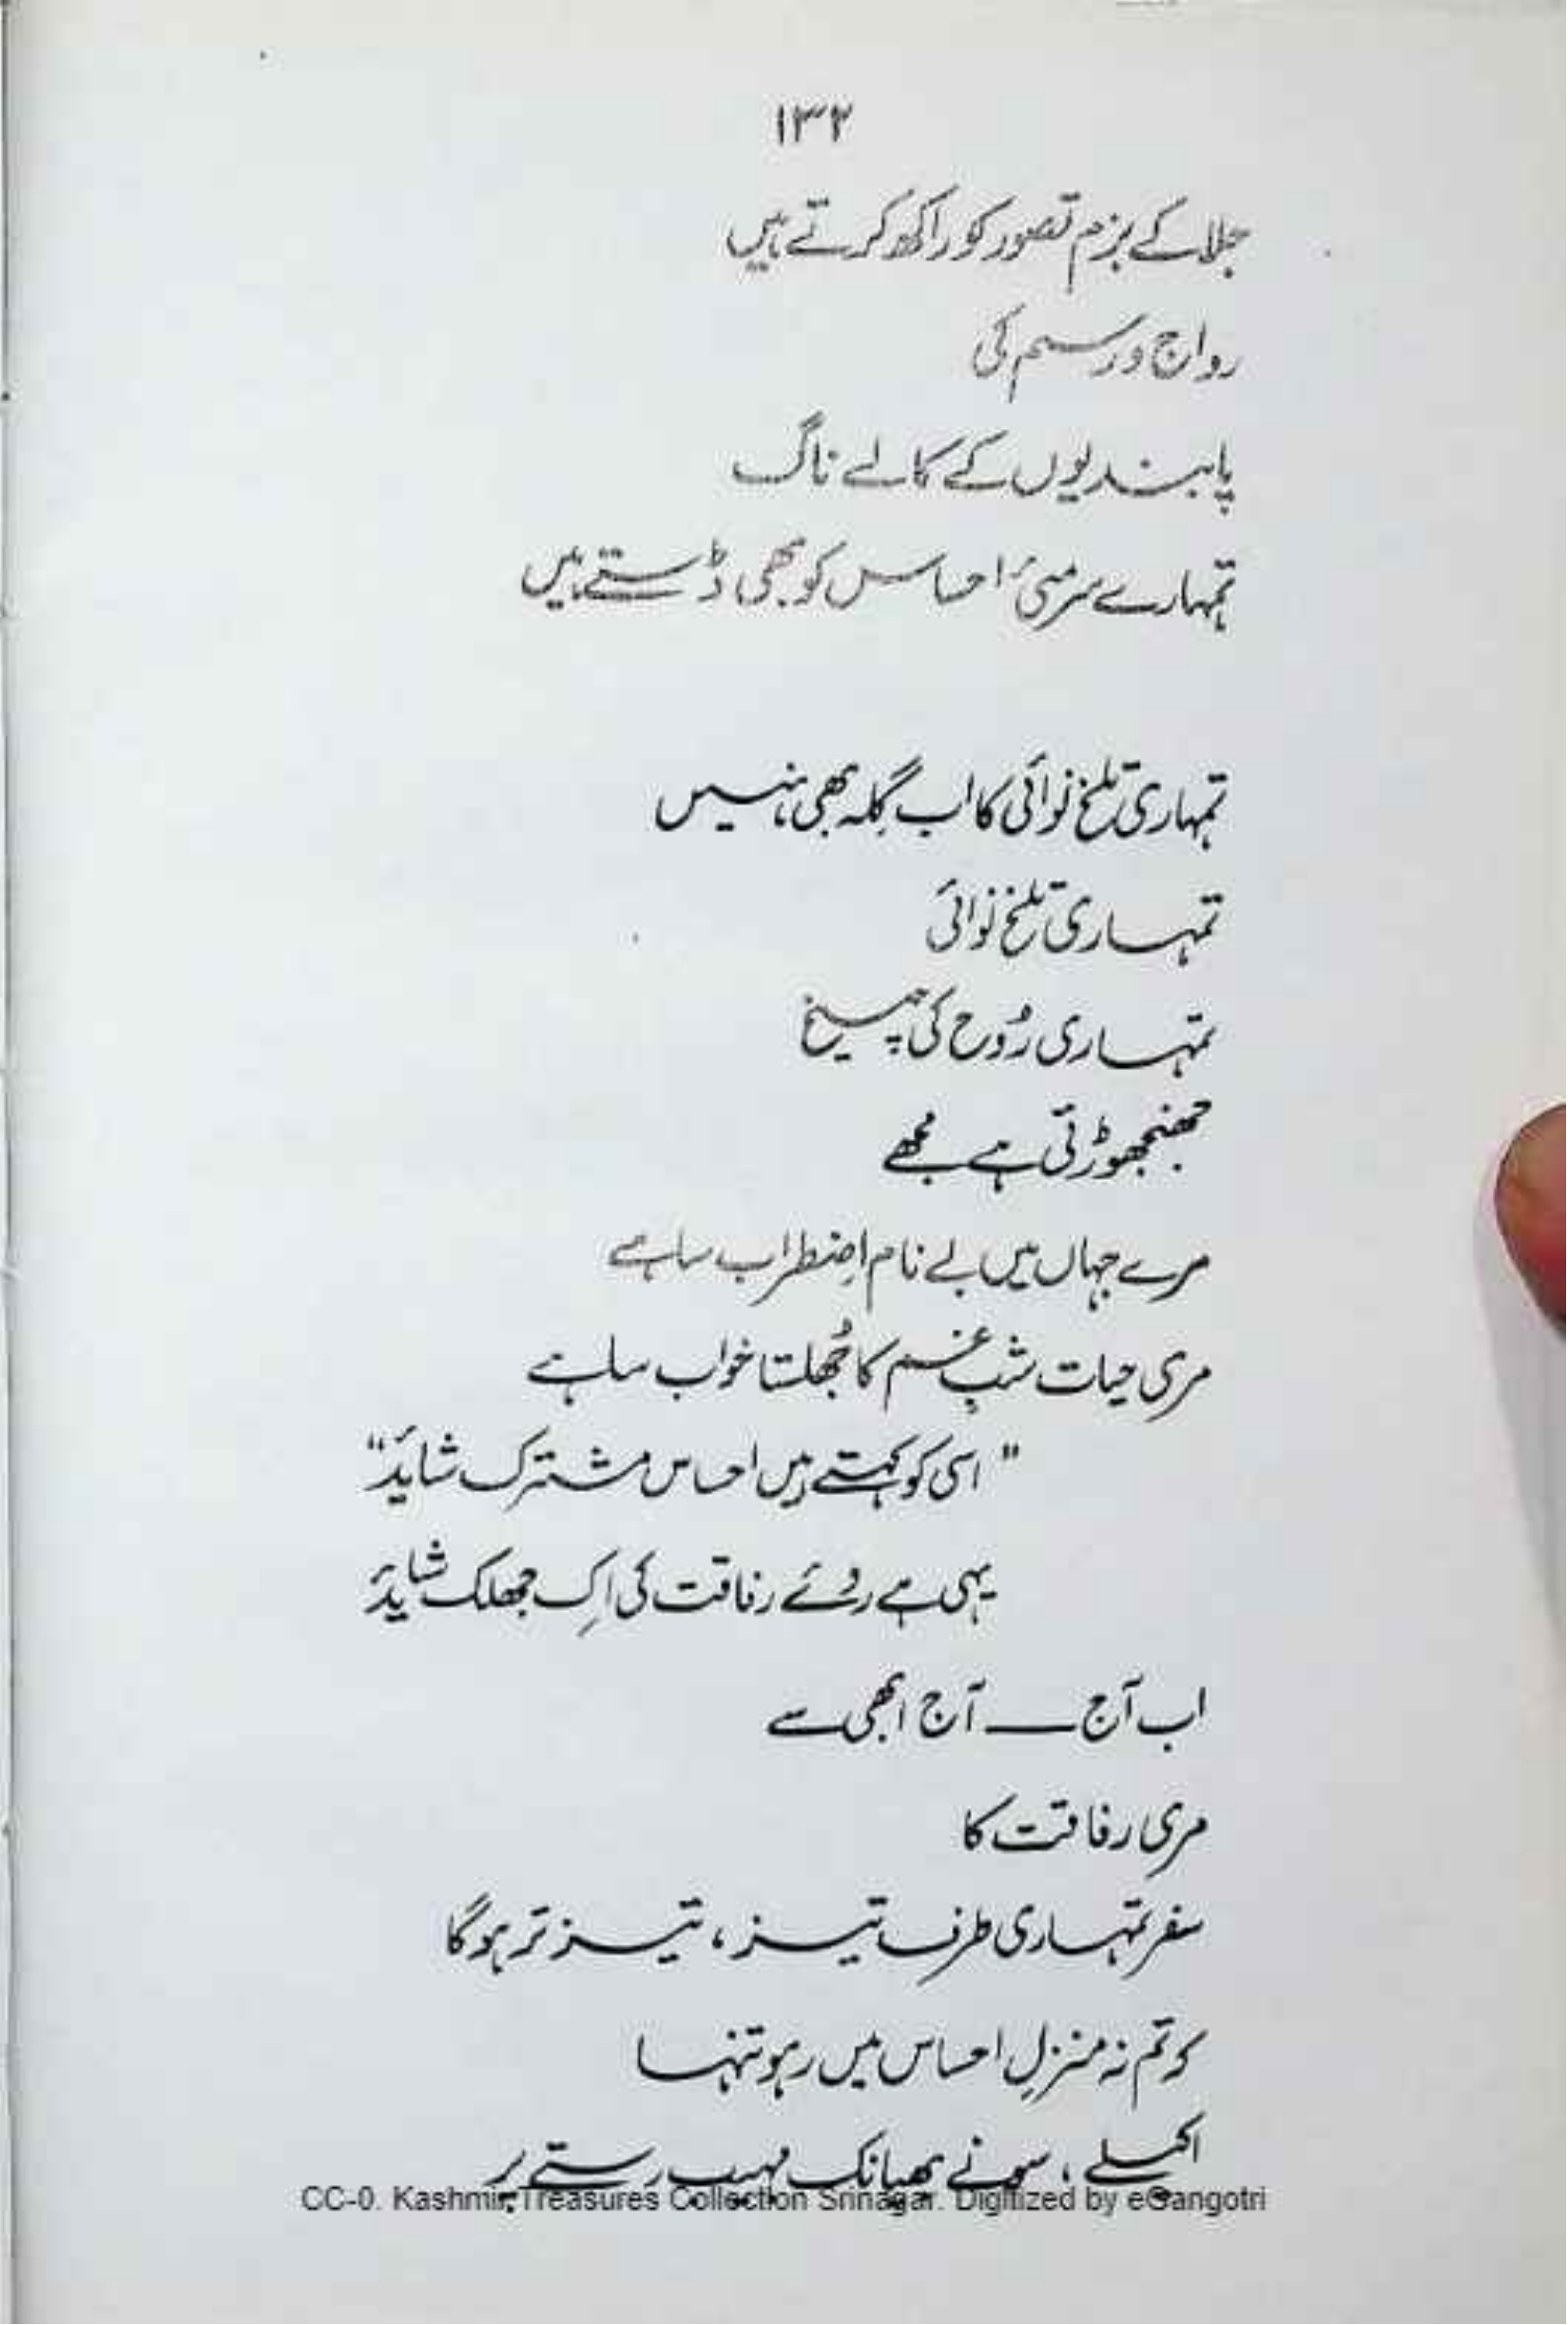 ۱۳۲
جلا کے بزم تصور کو راکھ کرتے ہیں
رواج و رسم کی
پابندیوں کے کالے ناگ
تمہارے سرمئی احساس کو بھی ڈستے ہیں
تمہاری تلخ نوائی کا اب گِلہ بھی نہیں
تمہاری تلخ نوائی
تمہاری رُوح کی چیخ
جھنجھوڑتی ہے مجھے
مرے جہاں میں بے نام اِضطراب سا ہے
مری حیات شبِ غم کا جُھلستا خواب سا ہے
" اسی کو کہتے ہیں احساس مشترک شائد"
یہی ہے روئے رفاقت کی اِک جھلک شائد
اب آج — آج ابھی سے
مری رفاقت کا
سفر تمہاری طرف تیز ، تیز تر ہوگا
کہ تم نہ منزلِ احساس میں رہو تنہا
اکیلے ، سونے بھیانک مہیب رستے پر
CC-0. Kashmir Treasures Collection Srinagar. Digitized by eGangotri